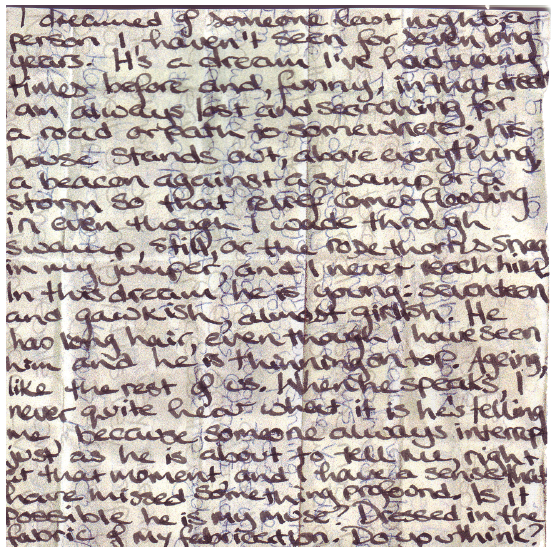 I dreamed of someone last night: a
person I haven't seen for seven long
years. It's a dream I've had many
times before and, funny, in that dream
I am always lost and searching for
a road or path to somewhere. his
house stands out, above everything,
a beacon against a swamp or a
storm so that relief comes flooding
in even though I wade through
swamp, still, or the rose thorns snag
in my jumper, and I never reach him.
In this dream, he is young: seventeen
and gawkish, almost girlish. He
has long hair, even though I have seen
him and he is thinning on top. Ageing,
like the rest of us. When he speaks, I
never quite hear what it is he's telling
me, because someone always interrupts
just as he is about to tell me, right
at that moment and I have a sense that
I have missed something profound. Is it
possible he is my muse? Dressed in the
fabric of my fabrication? Do you think?